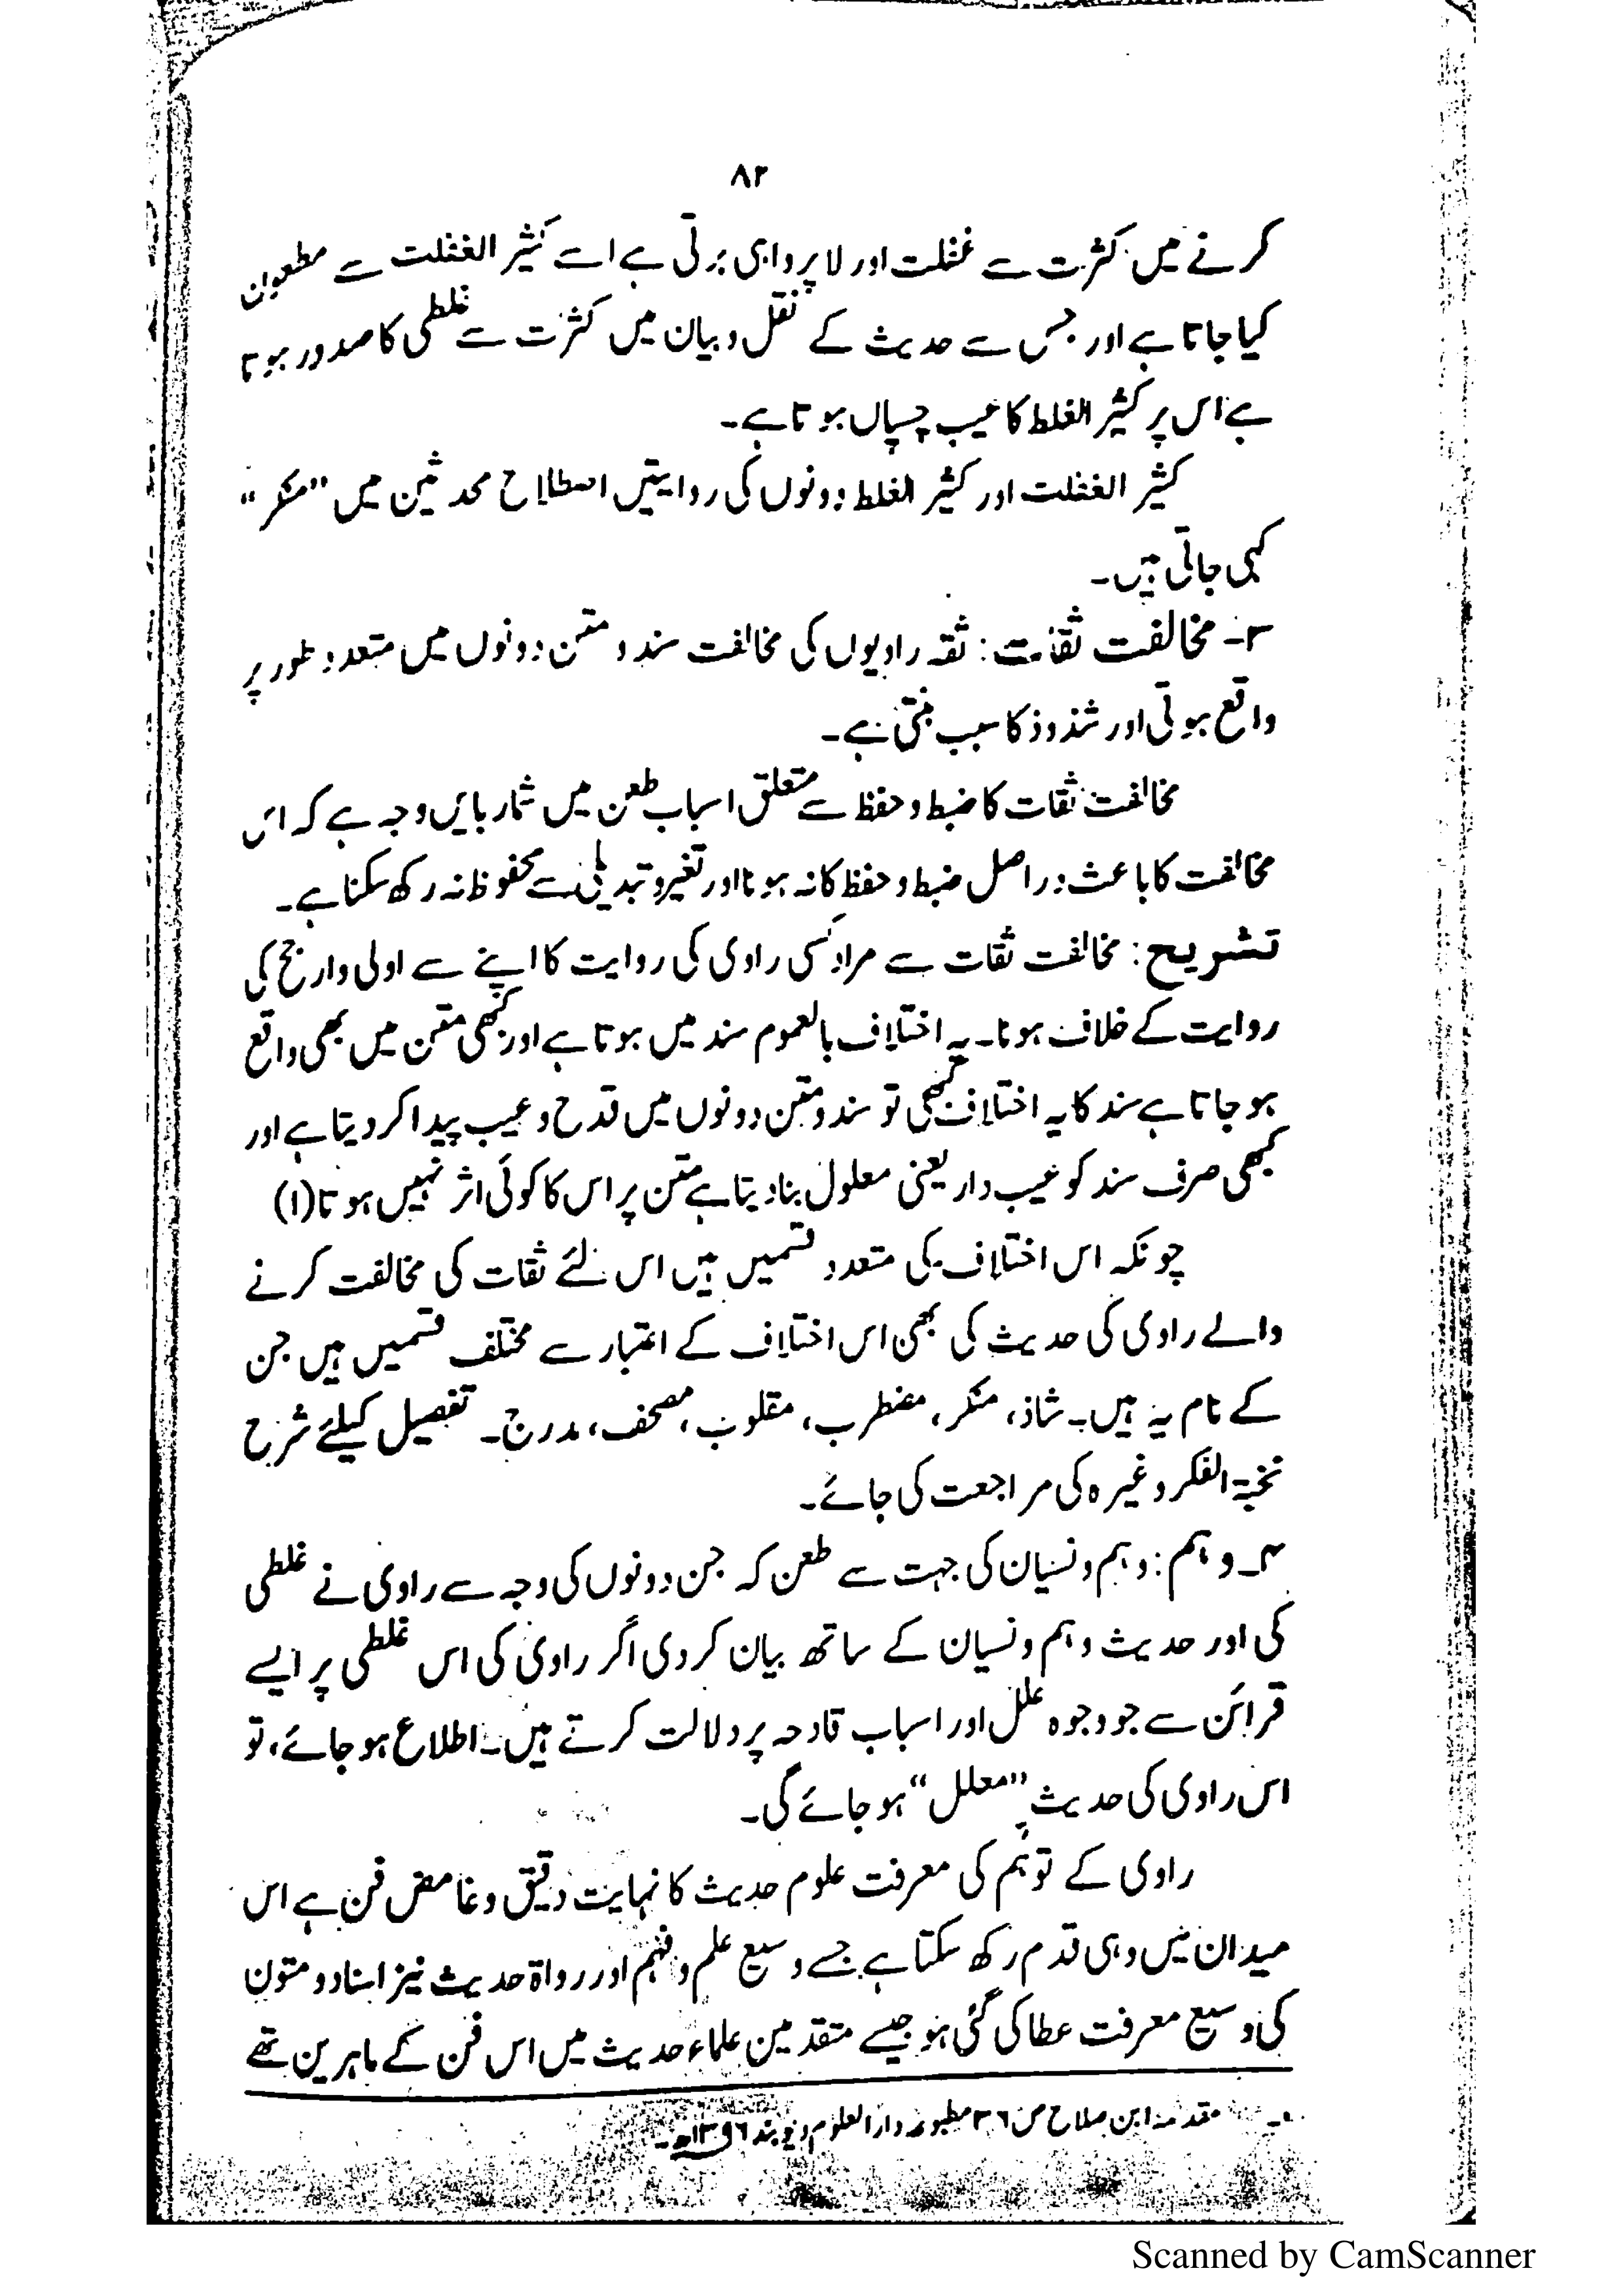 ۸۲
کرنے میں کثرت سے غفلت اور لاپرواہی برتی ہے اسے کثیر الغفلت سے مطعون
کیا جاتا ہے اور جس سے حدیث کے نقل و بیان میں کثرت سے غلطی کا صدور ہوتا
ہے اس پر کثیر الغلط کا عیب چسپاں ہوتا ہے۔
کثیر الغفلت اور کثیر الغلط دونوں کی روایتیں اصطلاح محدثین میں ”منکر“
کہی جاتی ہیں۔
۳۔ مخالفت ثقات: ثقہ راویوں کی مخالفت سند و متن دونوں میں متعدد طور پر
واقع ہوتی اور شذوذ کا سبب بنتی ہے۔
مخالفت ثقات کا ضبط و حفظ سے متعلق اسباب طعن میں شمار بایں وجہ ہے کہ اس
مخالفت کا باعث دراصل ضبط و حفظ کا نہ ہونا اور تغیر و تبدیلی سے محفوظ نہ رکھ سکنا ہے۔
تشریح: مخالفت ثقات سے مراد کسی راوی کی روایت کا اپنے سے اولی وارجح کی
روایت کے خلاف ہونا۔ یہ اختلاف بالعموم سند میں ہوتا ہے اور کبھی متن میں بھی واقع
ہو جاتا ہے سند کا یہ اختلاف کبھی تو سند و متن دونوں میں قدح و عیب پیدا کر دیتا ہے اور
کبھی صرف سند کو عیب دار یعنی معلول بنا دیتا ہے متن پر اس کا کوئی اثر نہیں ہوتا (۱)
چونکہ اس اختلاف کی متعدد قسمیں ہیں اس لئے ثقات کی مخالفت کرنے
والے راوی کی حدیث کی بھی اس اختلاف کے اعتبار سے مختلف قسمیں ہیں جن
کے نام یہ ہیں۔ شاذ، منکر، مضطرب، مقلوب، مصحف، مدرج۔ تفصیل کیلئے شرح
نخبۃ الفکر وغیرہ کی مراجعت کی جائے۔
۴۔ وہم: وہم و نسیان کی جہت سے طعن کہ جن دونوں کی وجہ سے راوی نے غلطی
کی اور حدیث وہم و نسیان کے ساتھ بیان کر دی اگر راوی کی اس غلطی پر ایسے
قرائن سے جو وجوہ علل اور اسباب قادحہ پر دلالت کرتے ہیں۔ اطلاع ہو جائے، تو
اس راوی کی حدیث ”معلل“ ہو جائے گی۔
راوی کے توہم کی معرفت علوم حدیث کا نہایت دقیق و غامض فن ہے اس
میدان میں وہی قدم رکھ سکتا ہے جسے وسیع علم و فہم اور رواۃ حدیث نیز اسناد و متون
کی وسیع معرفت عطا کی گئی ہو جیسے متقدمین علماء حدیث میں اس فن کے ماہرین تھے
۱۔ مقدمہ ابن صلاح ص ۳۶ مطبوعہ دارالعلوم دیوبند ۱۳۹۶ھ۔
Scanned by CamScanner